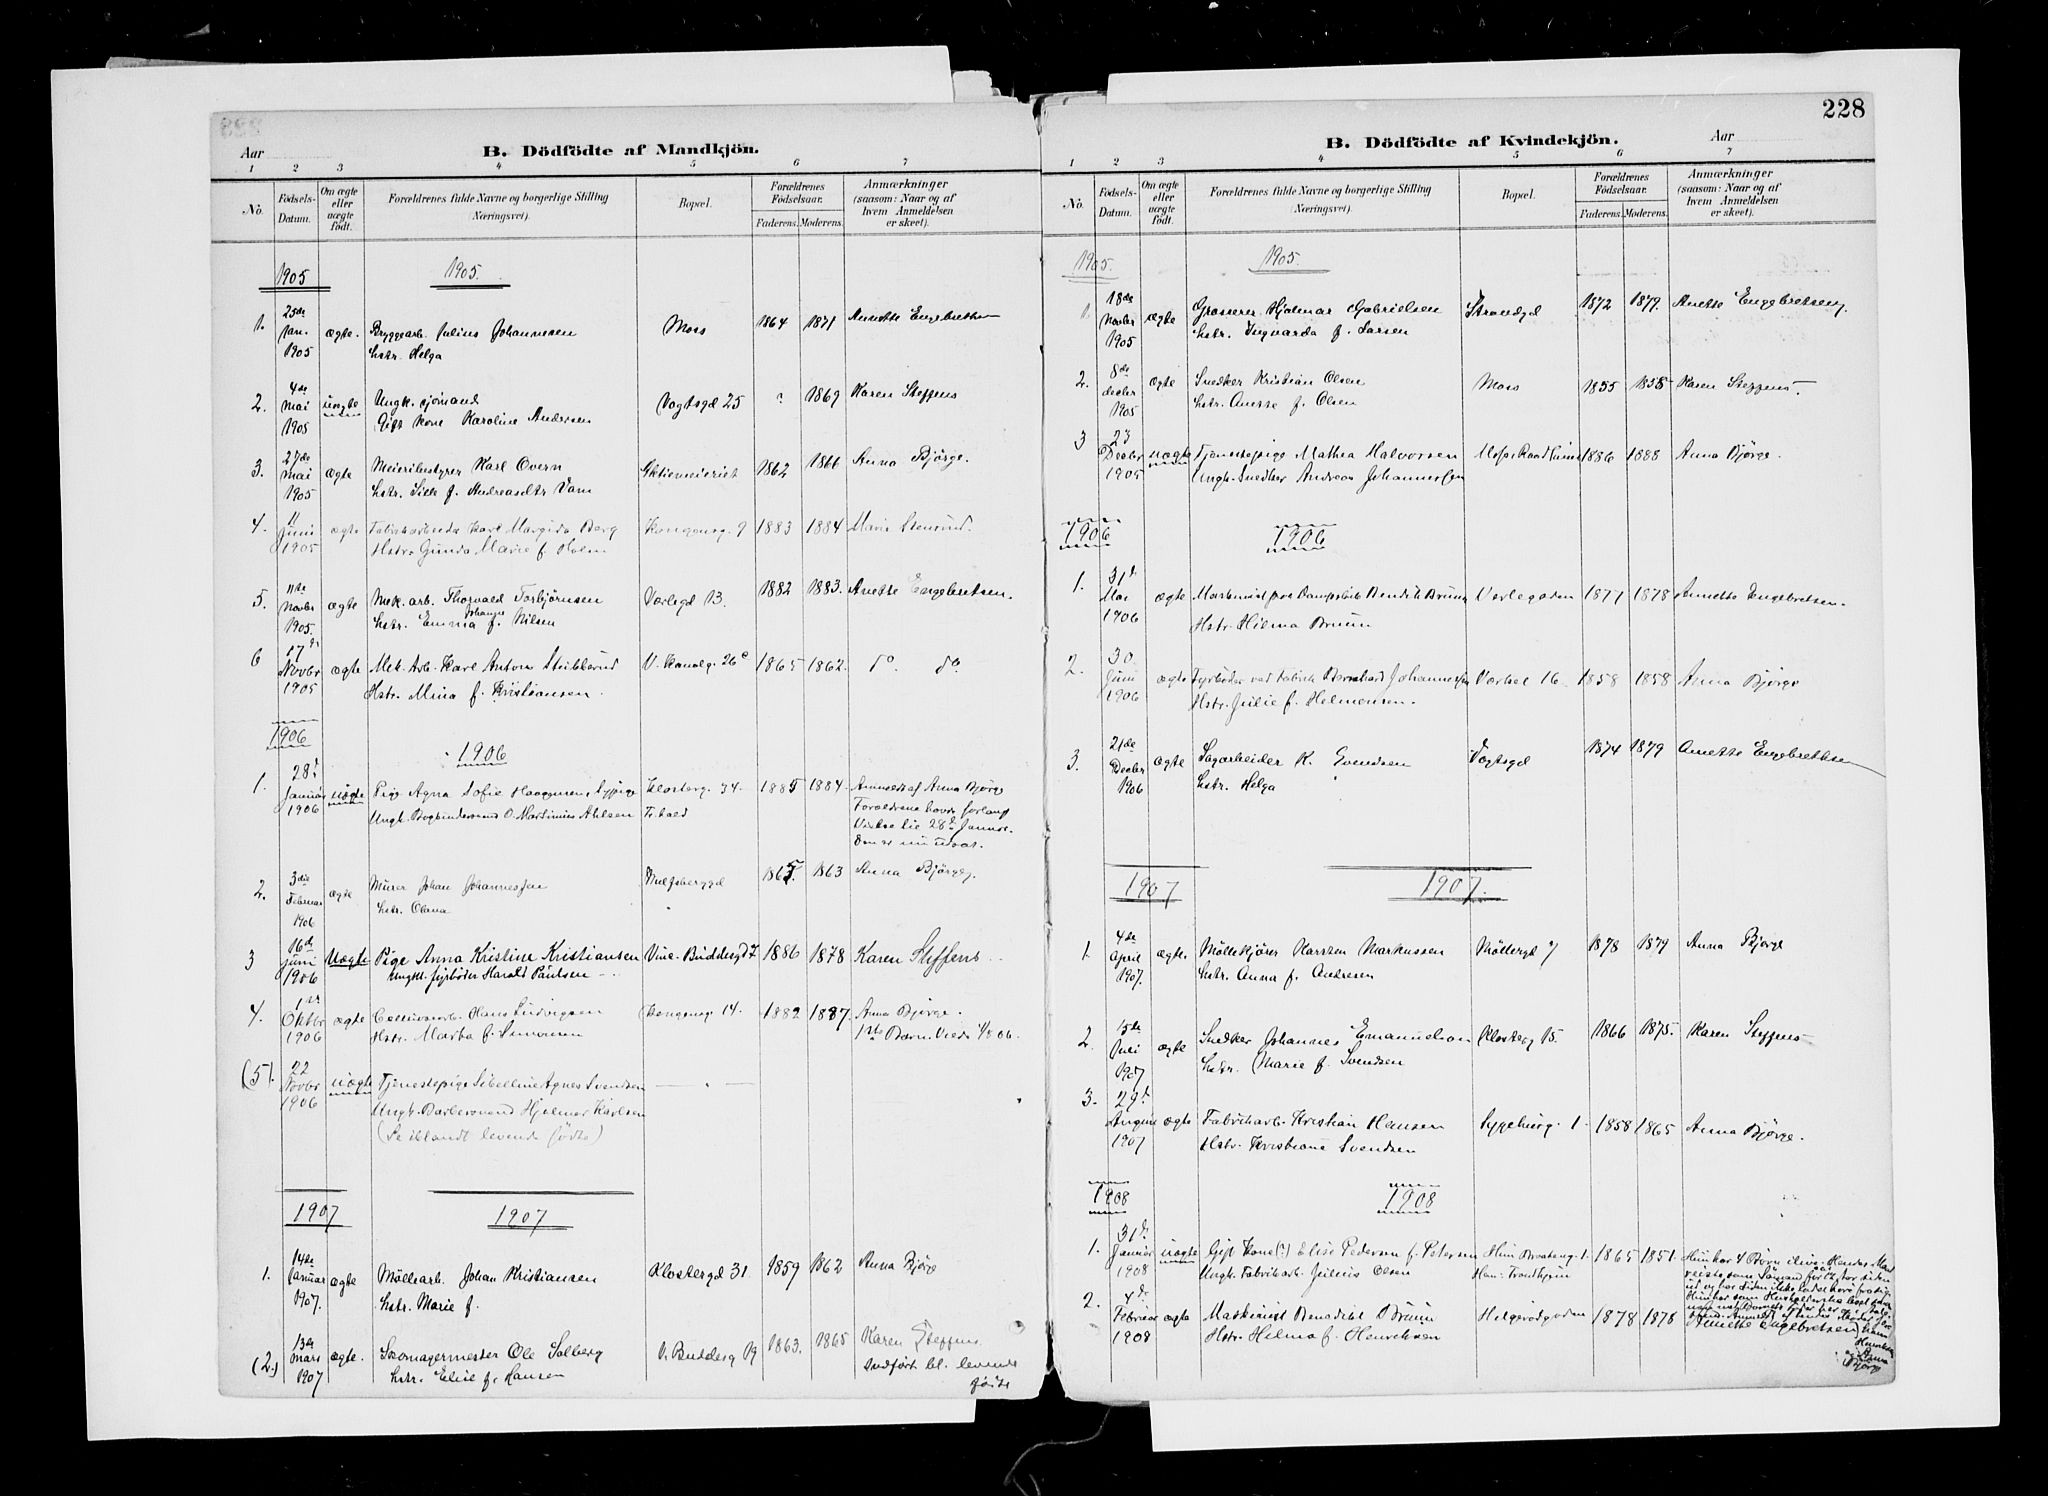 228
Aar
B. Dödfödte af Mandkjön.
1 2 3 4 5 6 7
No. Födsels-Datum. Om ægte eller uægte født. Forældrenes fulde Navne og borgerlige Stilling (Næringsvei). Bopæl. Forældrenes Födselsaar. Faderens. Moderens. Anmærkninger (saasom: Naar og af hvem Anmeldelsen er skeet).
1905 1905.
1. 25de Jan. 1905 ægte. Bryggearb. Julius Johannesen Moss 1864 1871 Annette Engebretsen
hstr. Helga
2. 4de Mai 1905 uægte Ungk. sjömand Vogtsgd 25 ? 1869 Karen Steffens
Gift Kone Karoline Andersen
3. 27de Mai 1905 ægte Meieribestyrer Karl Overn Aktiemeieriet 1862 1866 Anna Bjørge.
hstr. f. Andreasdtr
4. 11 Juni 1905 ægte Fabrikarbeider Karl Berg Kongensg. 9 1883 1884 Marie Stensrud.
Hstr. Gunda Marie f. Holm
5. 11te Novbr 1905. ægte Mek. arb. Thorvald Torbjörnsen Varlegd 13. 1882 1883. Anette Engebretsen.
hstr. Emma f. Nilsen
6 17de Novbr 1905 ægte Mek. Arb. Karl Anton V. Kanalg. 26c 1865 1862. do. do.
Hstr. Mina f. Kristiansen.
1906 1906
1. 28de Januar 1906 uægte Pige Agna Sofie Klosterg. 34 1885 1884. Anmeldt af Anna Bjørge
Ungk. O. Martinius Ahlsen
2. 3die Februar 1906 ægte Murer Johan Johannessen 1865. 1863 Anna Bjørge.
hstr. Olava
3 16de Juni 1906 Uægte Pige Anna Kristine Kristiansen Vinc. Buddesgd 7 1886 1878 Karen Steffens
Ungkl. fyrböter Harald Paulsen
4. 1ste Oktbr 1906 ægte Cellulosearb. Hans Ludvigsen Kongensg. 14. 1882 1887. Anna Bjørge.
Hstr. Martha f. Simonsen
(5). 22 Novbr 1906 uægte Tjenestepige Sibelline Agnes Svendsen
Ungk. Barbersvend Hjalmar Karlsen
(Se iblandt levende fødte)
1907 1907
1. 14de Januar 1907. ægte Möllearb. Johan Kristiansen Klostergd 31 1859 1862 Anna Bjørge
hstr. Marie f.
(2.) 13de Mars 1907 ægte. Skomagermester Ole Solberg V. Buddesg 19 1863. 1865 Karen Steffens
hstr. Elise f. Hansen Indført bl. levende fødte
B. Dödfödte af Kvindekjön.
Aar
1 2 3 4 5 6 7
No. Födsels-Datum. Om ægte eller uægte født. Forældrenes fulde Navne og borgerlige Stilling (Næringsvei). Bopæl. Forældrenes Födselsaar. Faderens. Moderens. Anmærkninger (saasom: Naar og af hvem Anmeldelsen er skeet).
1905. 1905.
1. 18de Novbr 1905 ægte Grosserer Hjalmar Gabrielsen Strandgd 1872 1879. Anette Engebretsen
hstr. Ingvarda f. Larsen
2. 8de decbr 1905 ægte Snedker Kristian Olsen Moss 1855 1858 Karen Steffens.
hstr. Anette f. Olsen
3 23 Decbr 1905 uægte Tjenestepige Mathea Halvorsen 1886 1888 Anna Bjørge.
Ungk. Snedker Andreas Johannessen
1906 1906
1. 31te Mai 1906 ægte Bendik Bruun Varlegaden 1877 1878 Annette Engebretsen.
Hstr. Hilma Bruun
2. 30 Juni 1906 ægte Fyrböder ved Fabrik Bernhard Johannessen Værket 16 1858 1858 Anna Bjørge
Hstr. Julie f. Helmersen.
3. 21de Decbr 1906 ægte Sagarbeider K. Evendsen Vogtsgd 1874 1879 Annette Engebretsen
hstr. Helga
1907 1907.
1. 4de April 1907. ægte. Möllekjører Karsten Markussen Möllergd 7 1878 1879 Anna Bjørge
hstr. Anna f. Andresen
2. 15de Juli 1907 ægte Snedker Johannes Emanuelson Klosterg 15. 1866 1875. Karen Steffens
hstr. Marie f. Svendsen
3. 29de August 1907 ægte Fabrikarb. Kristian Hansen 1. 1858 1865 Anna Bjørge.
Hstr. Kristiane Svendsen
1908 1908
1. 31te Januar 1908 uægte Gift Kone (?) Elise Pedersen f. Petersen 1865 1851.
Ungk. Fabrikarb. Julius Olsen
2. 4de Februar 1908 ægte Maskinist Benedikt Bruun Helgerødgaden 1878 1878 Annette Engebretsen
Hstr. Hilma f. Henriksen